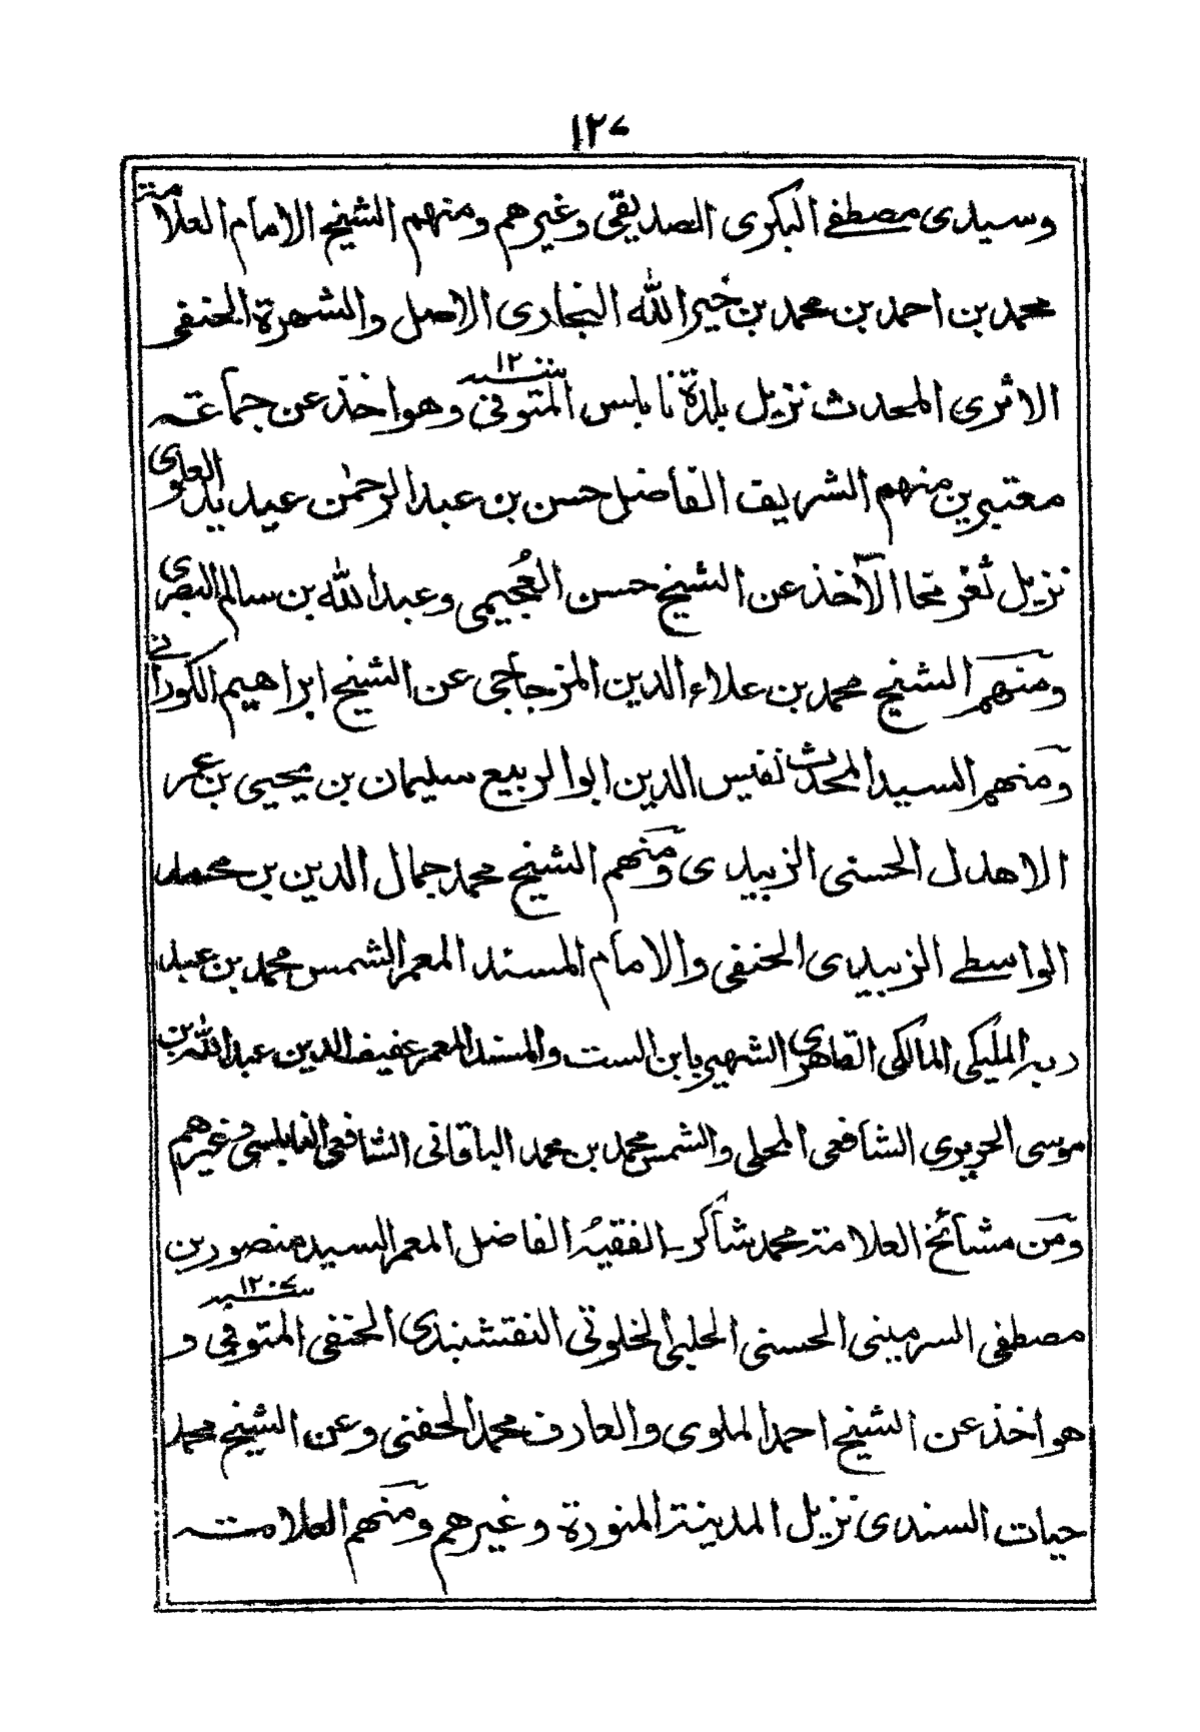 ١٢٧
وسيدى مصطفے البكرى الصديقى وغيرهم ومنهم الشيخ الامام العلامة
محمد بن احمد بن محمد بن خير الله البخارى الاصل والشهرة الحنفى
الاثرى المحدث نزيل بلدة نابلس المتوفى سنة ١٢٠٠ وهو اخذ عن جماعة
معتبرين منهم الشريف الفاضل حسن بن عبد الرحمٰن عيديد العلوى
نزيل ثغر مخا الآخذ عن الشيخ حسن العُجيمى وعبد الله بن سالم البصرى
ومنهم الشيخ محمد بن علاء الدين المزجاجى عن الشيخ ابراهيم الكورانے
ومنهم السيد المحدث نفيس الدين ابو الربيع سليمان بن يحيى بن عمر
الاهدل الحسنى الزبيدى ومنهم الشيخ محمد جمال الدين بن محمد
الواسطے الزبيدى الحنفى والامام المسند المعمر الشمس محمد بن عبد
ربه المليكى المالكى القاهرى الشهير بابن الست والمسند المعمر عفيف الدين عبد الله بن
موسى الحريري الشافعى المحلى والشمس محمد بن محمد الباقانى الشافعى النابلسى وغيرهم
ومن مشائخ العلامة محمد شاكر الفقيهُ الفاضل المعمر السيد منصور بن
مصطفى السرمينى الحسنى الحلبى الخلوتى النقشبندى الحنفى المتوفى سنة ١٢٠٧ و
هو اخذ عن الشيخ احمد الملوى والعارف محمد الحفنى وعن الشيخ محمد
حيات السندى نزيل المدينة المنورة وغيرهم ومنهم العلامة